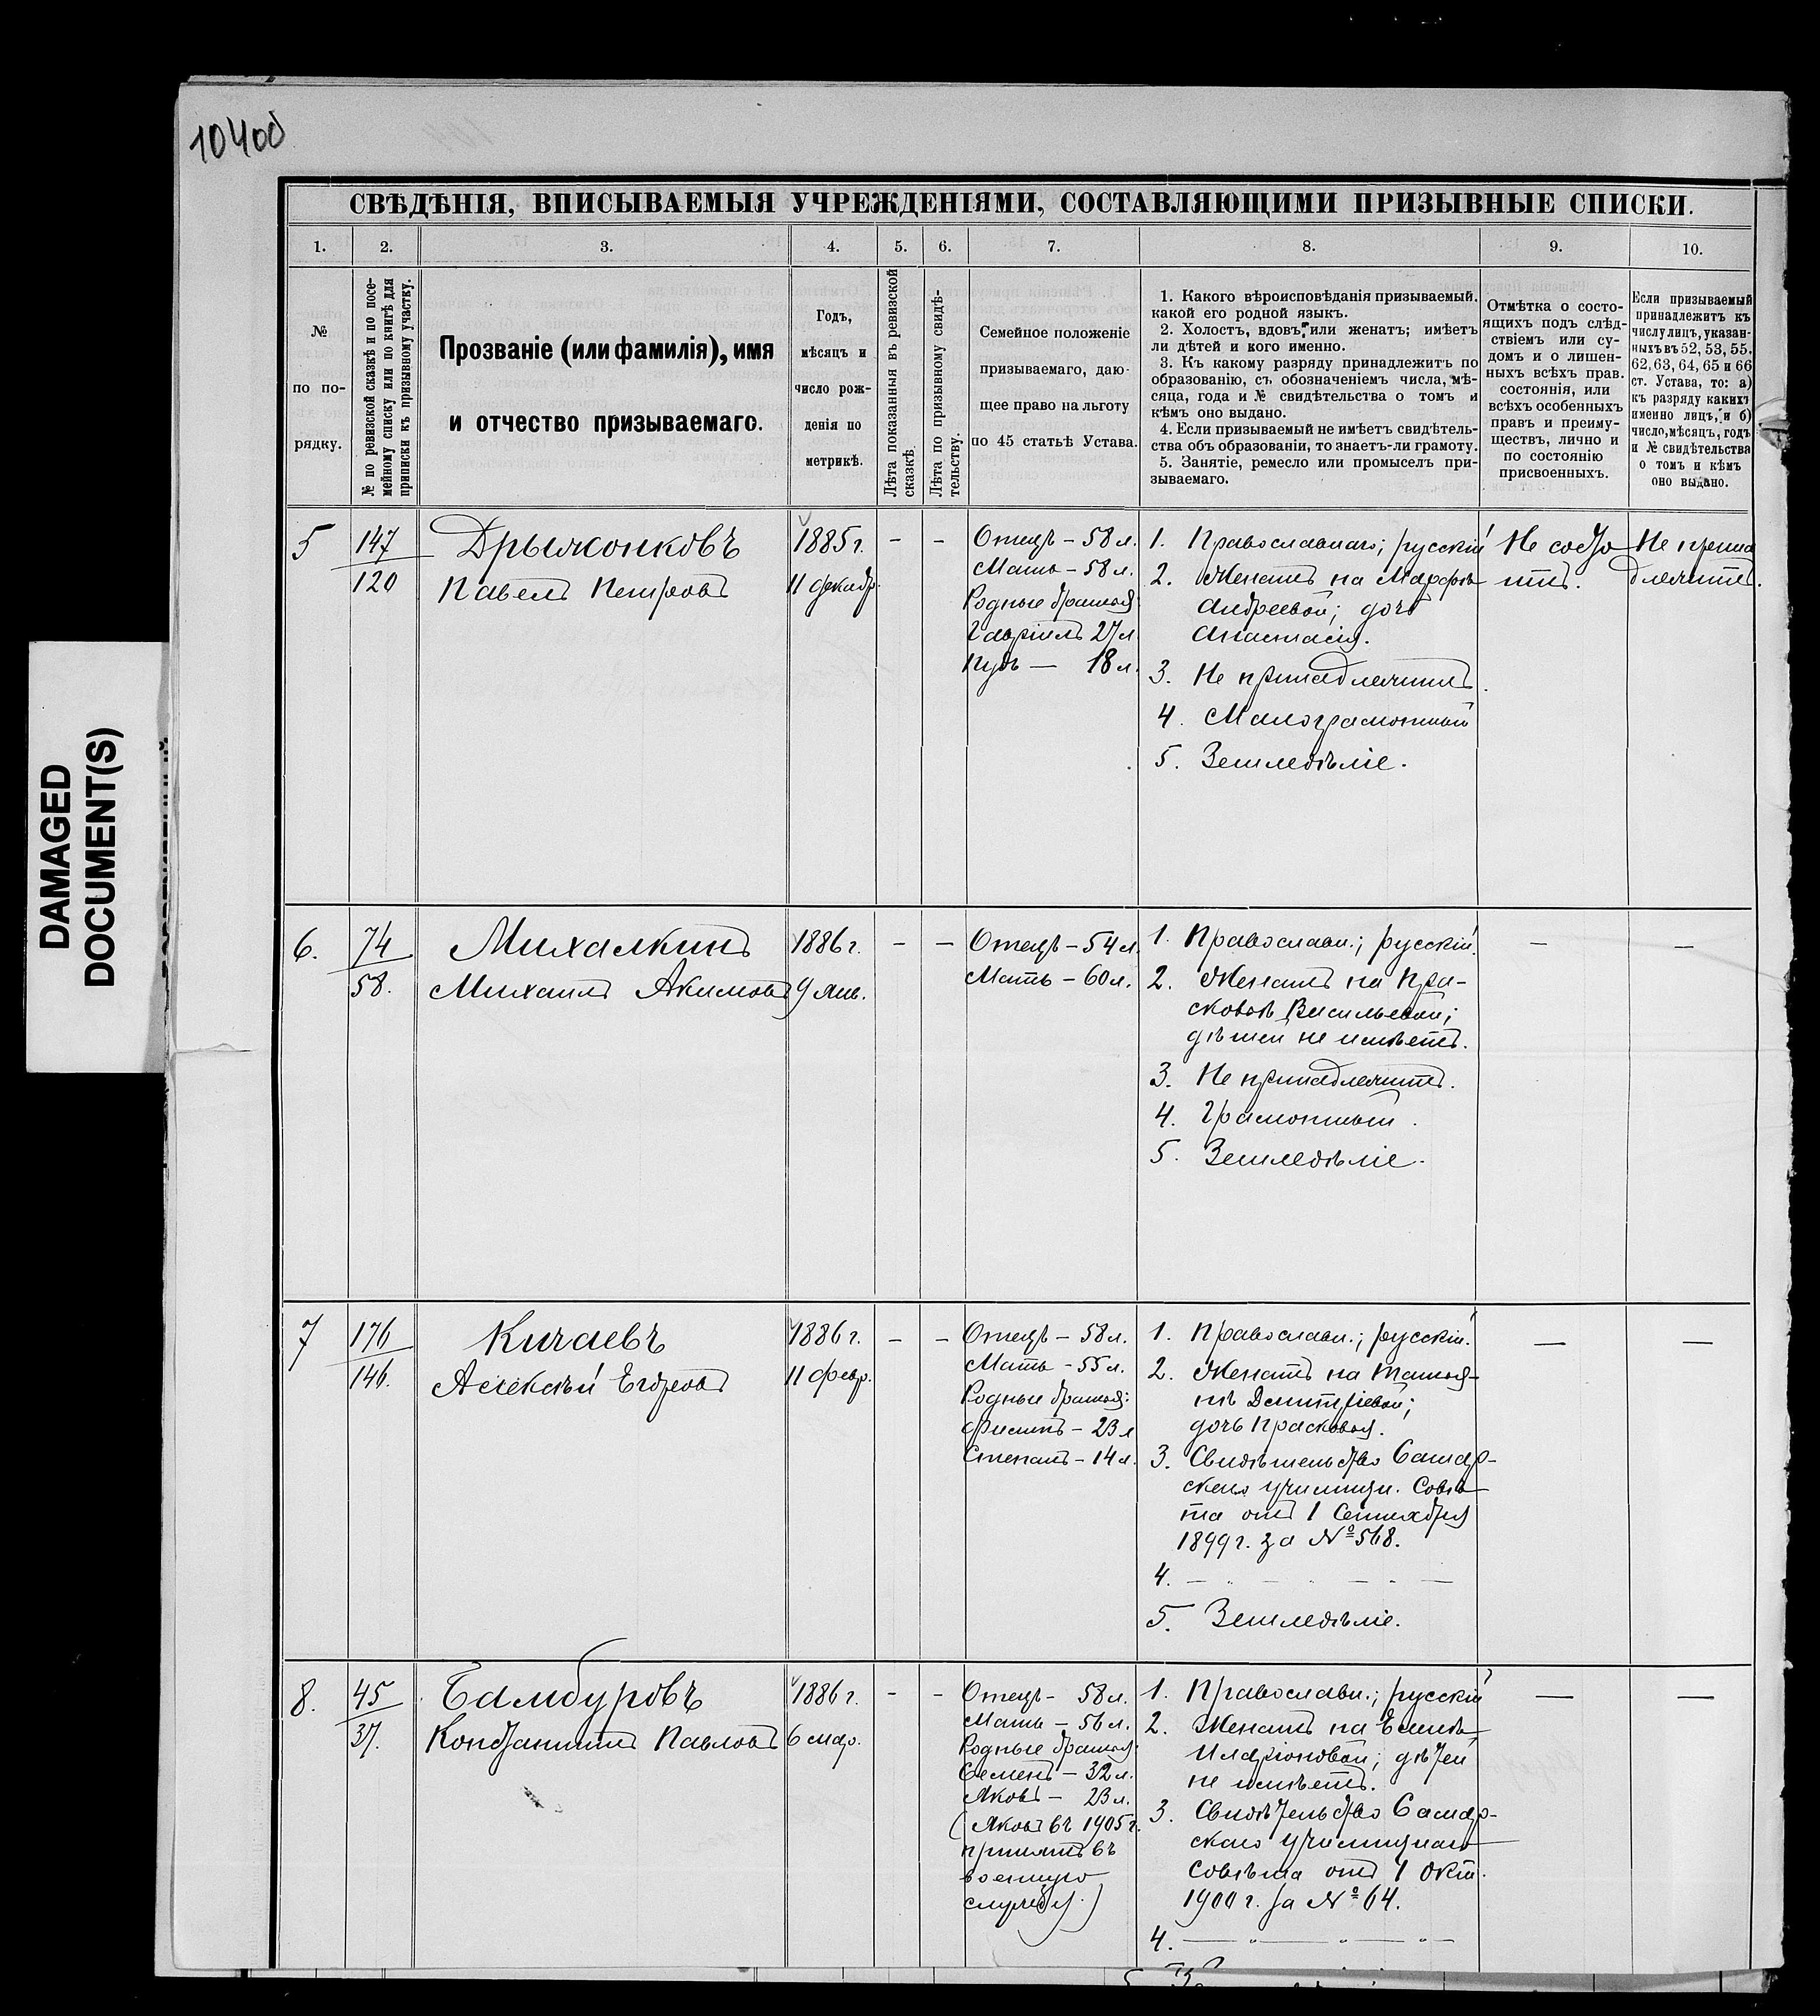 10400
DAMAGED
DOCUMENT(S)
СВѢДѢНІЯ, ВПИСЫВАЕМЫЯ УЧРЕЖДЕНІЯМИ, СОСТАВЛЯЮЩИМИ ПРИЗЫВНЫЕ СПИСКИ.
1. 2. 3. 4. 5. 6. 7. 8. 9. 10.
№
по по-
рядку.
№ по ревизской сказкѣ и по посе-
мейному списку или по книгѣ для
приписки къ призывному участку.
Прозваніе (или фамилія), имя
и отчество призываемаго.
Годъ,
мѣсяцъ и
число рож-
денія по
метрикѣ.
Лѣта показанныя въ ревизской
сказкѣ.
Лѣта по призывному свидѣ-
тельству.
Семейное положеніе
призываемаго, даю-
щее право на льготу
по 45 статьѣ Устава.
1. Какого вѣроисповѣданія призываемый.
какой его родной языкъ.
2. Холостъ, вдовъ, или женатъ; имѣетъ
ли дѣтей и кого именно.
3. Къ какому разряду принадлежитъ по
образованію, съ обозначеніемъ числа, мѣ-
сяца, года и № свидѣтельства о томъ и
кѣмъ оно выдано.
4. Если призываемый не имѣетъ свидѣтель-
ства объ образованіи, то знаетъ-ли грамоту.
5. Занятіе, ремесло или промыселъ при-
зываемаго.
Отмѣтка о состо-
ящихъ подъ слѣд-
ствіемъ или су-
домъ и о лишен-
ныхъ всѣхъ прав.
состоянія, или
всѣхъ особенныхъ
правъ и преиму-
ществъ, лично и
по состоянію
присвоенныхъ.
Если призываемый
принадлежитъ къ
числу лицъ, указан-
ныхъ въ 52, 53, 55.
62, 63, 64, 65 и 66
ст. Устава, то: а)
къ разряду какихъ
именно лицъ, и б)
число, мѣсяцъ, годъ
и № свидѣтельства
о томъ и кѣмъ
оно выдано.
5
147
120
Дрыжонковъ
Павелъ Петровъ
1885 г.
11 декабр.
-
-
Отецъ – 58 л.
Мать – 58 л.
Родные братья:
Гавріилъ 27 л.
Нудъ — 18 л.
1. Православнаго; русскій
2. Женатъ на Марфѣ
Андреевой; дочь
Анастасія.
3. Не принадлежитъ.
4. Малограмотный
5. Земледѣліе.
Не состо
итъ.
Не прина
длежитъ.
6.
74
58.
Михалкинъ
Михаилъ Акимовъ
1886 г.
9 янв.
–
–
Отецъ – 54 л.
Мать – 60 л.
1. Православн.; русскій.
2. Женатъ на Пра-
сковьѣ Васильевой;
дѣтей не имѣетъ.
3. Не принадлежитъ.
4. Грамотный.
5. Земледѣліе.
—
—
7
176
146.
Кичаевъ
Алексѣй Егоровъ
1886 г.
11 февр.
–
–
Отецъ – 58 л.
Мать – 55 л.
Родные братья:
Филипъ – 23 л
Степанъ – 14 л.
1. Православн.; русскій.
2. Женатъ на Татья-
нѣ Дмитріевой;
дочь Прасковья.
3. Свидѣтельство Самар-
скаго училищн. Совѣ
та отъ 1 Сентября
1899 г. за № 568.
4. — „ — „ — „ —
5. Земледѣліе.
—
—
8.
45
37.
Бамбуровъ
Константинъ Павловъ
1886 г.
6 мар.
-
-
Отецъ – 58 л.
Мать – 56 л.
Родные братья:
Семенъ – 32 л.
Яковъ – 23 л.
(Яковъ въ 1905 г.
принятъ въ
военную
службу.)
1. Православн.; русскій
2. Женатъ на
Иларіоновой; дѣтей
не имѣетъ.
3. Свидѣтельство Самар-
скаго училищнаго
совѣта отъ 1 Окт.
1900 г. за № 64.
4. — „ — „ —
—
—